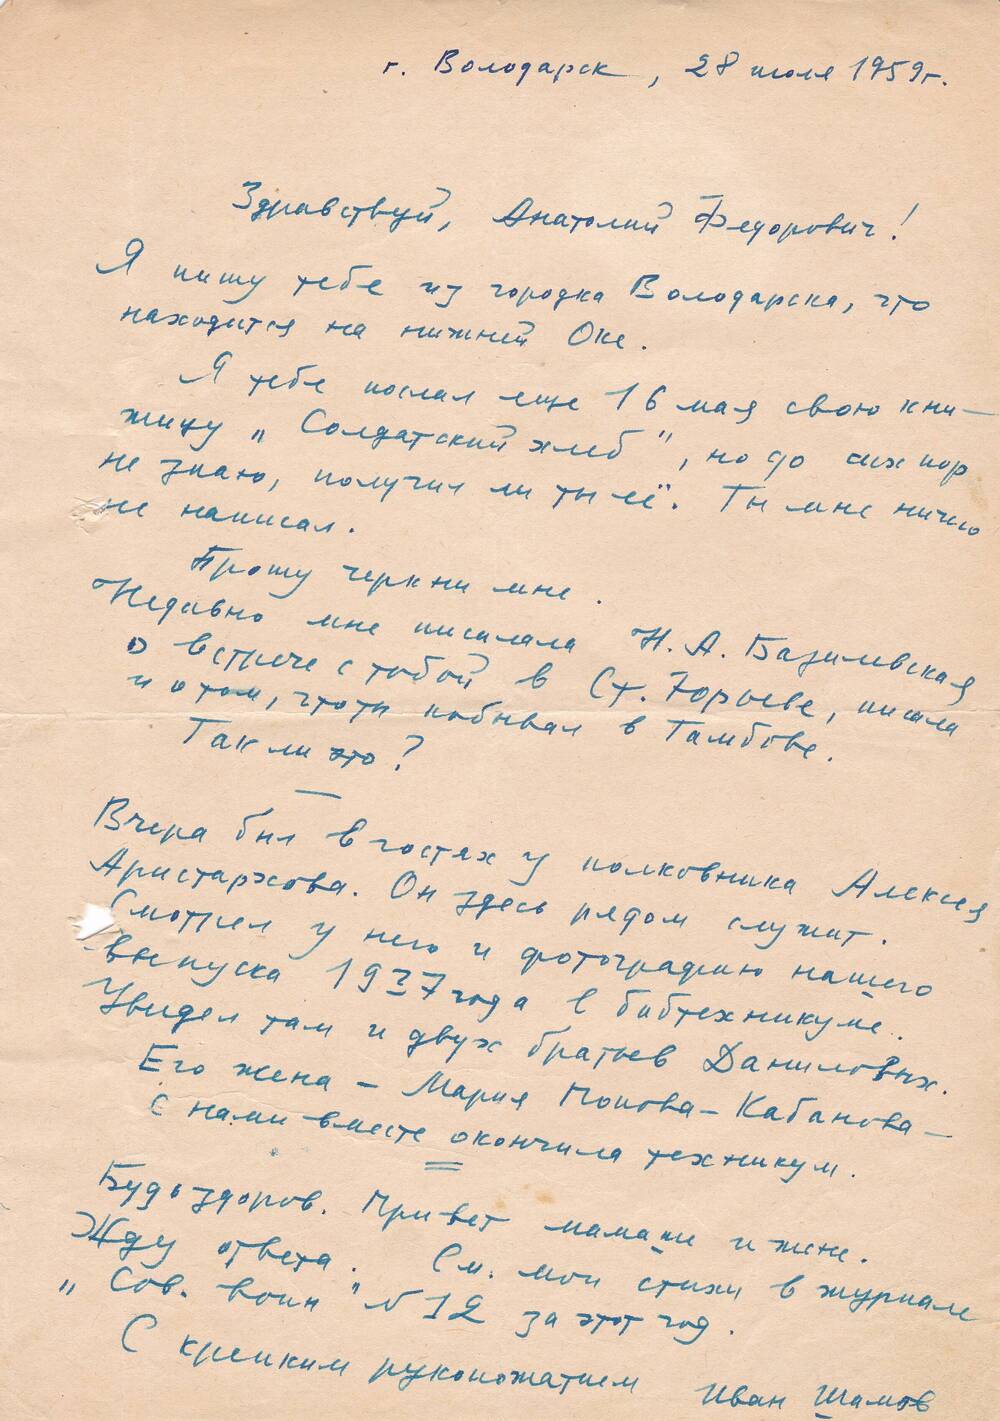 г. Володарск, 28 июля 1959г.
Здравствуй, Анатолий Федорович!
Я пишу тебе из городка Володарска, что
находится на нижней Оке.
Я тебе послал еще 16 мая свою кни-
жицу „Солдатский хлеб", но до сих пор
не знаю, получил ли ты её. Ты мне ничего
не написал.
Прошу черкни мне.
Недавно мне писала Н. А. Базилевская
о встрече с тобой в Ст. Юрьеве, писала
и о том, что ты побывал в Тамбове.
Так ли это?
Вчера был в гостях у полковника Алексея
Аристархова. Он здесь рядом служит.
Смотрел у него и фотографию нашего
выпуска 1937 года в бибтехникуме.
Увидел там и двух братьев Даниловых.
Его жена – Мария Попова-Кабанова –
с нами вместе окончила техникум.
Будь здоров. Привет мамаше и жене.
Жду ответа. См. мои стихи в журнале
„Сов. воин" N 12 за этот год.
С крепким рукопожатием Иван Шамов